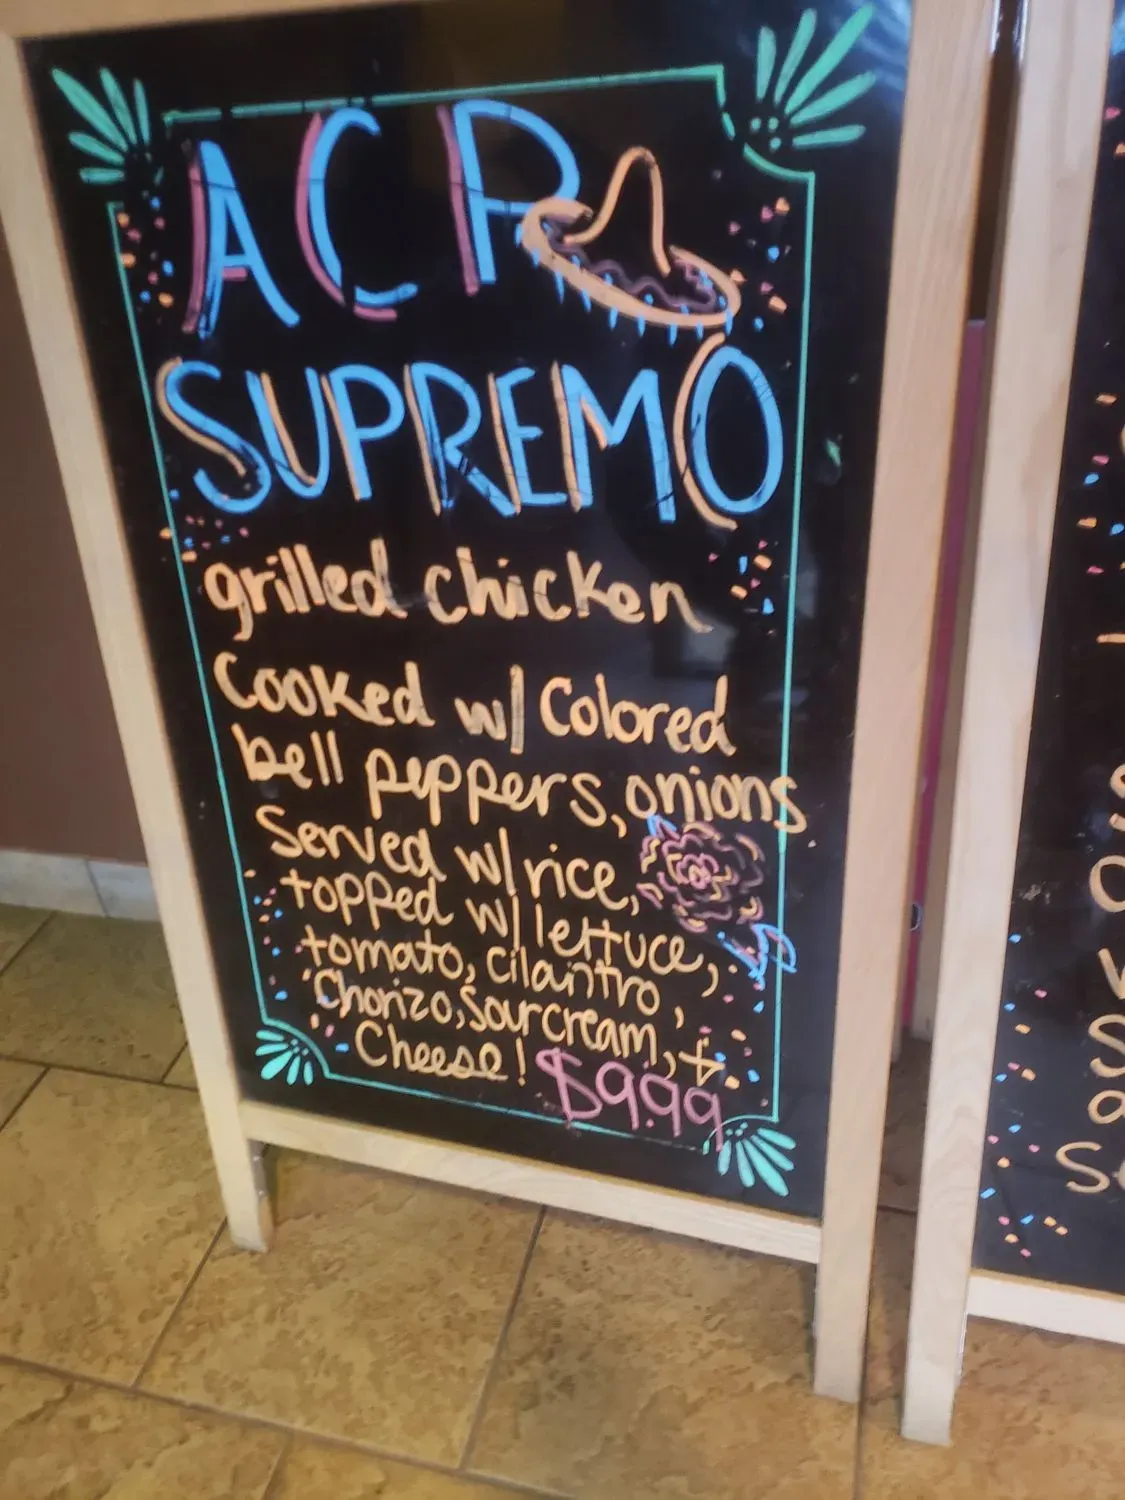 ACP
SUPREMO
grilled chicken
Cooked w/ Colored
bell peppers, onions
Served w/ rice,
topped w/ lettuce,
tomato, cilantro,
Chorizo, sour cream, +
Cheese! $9.99